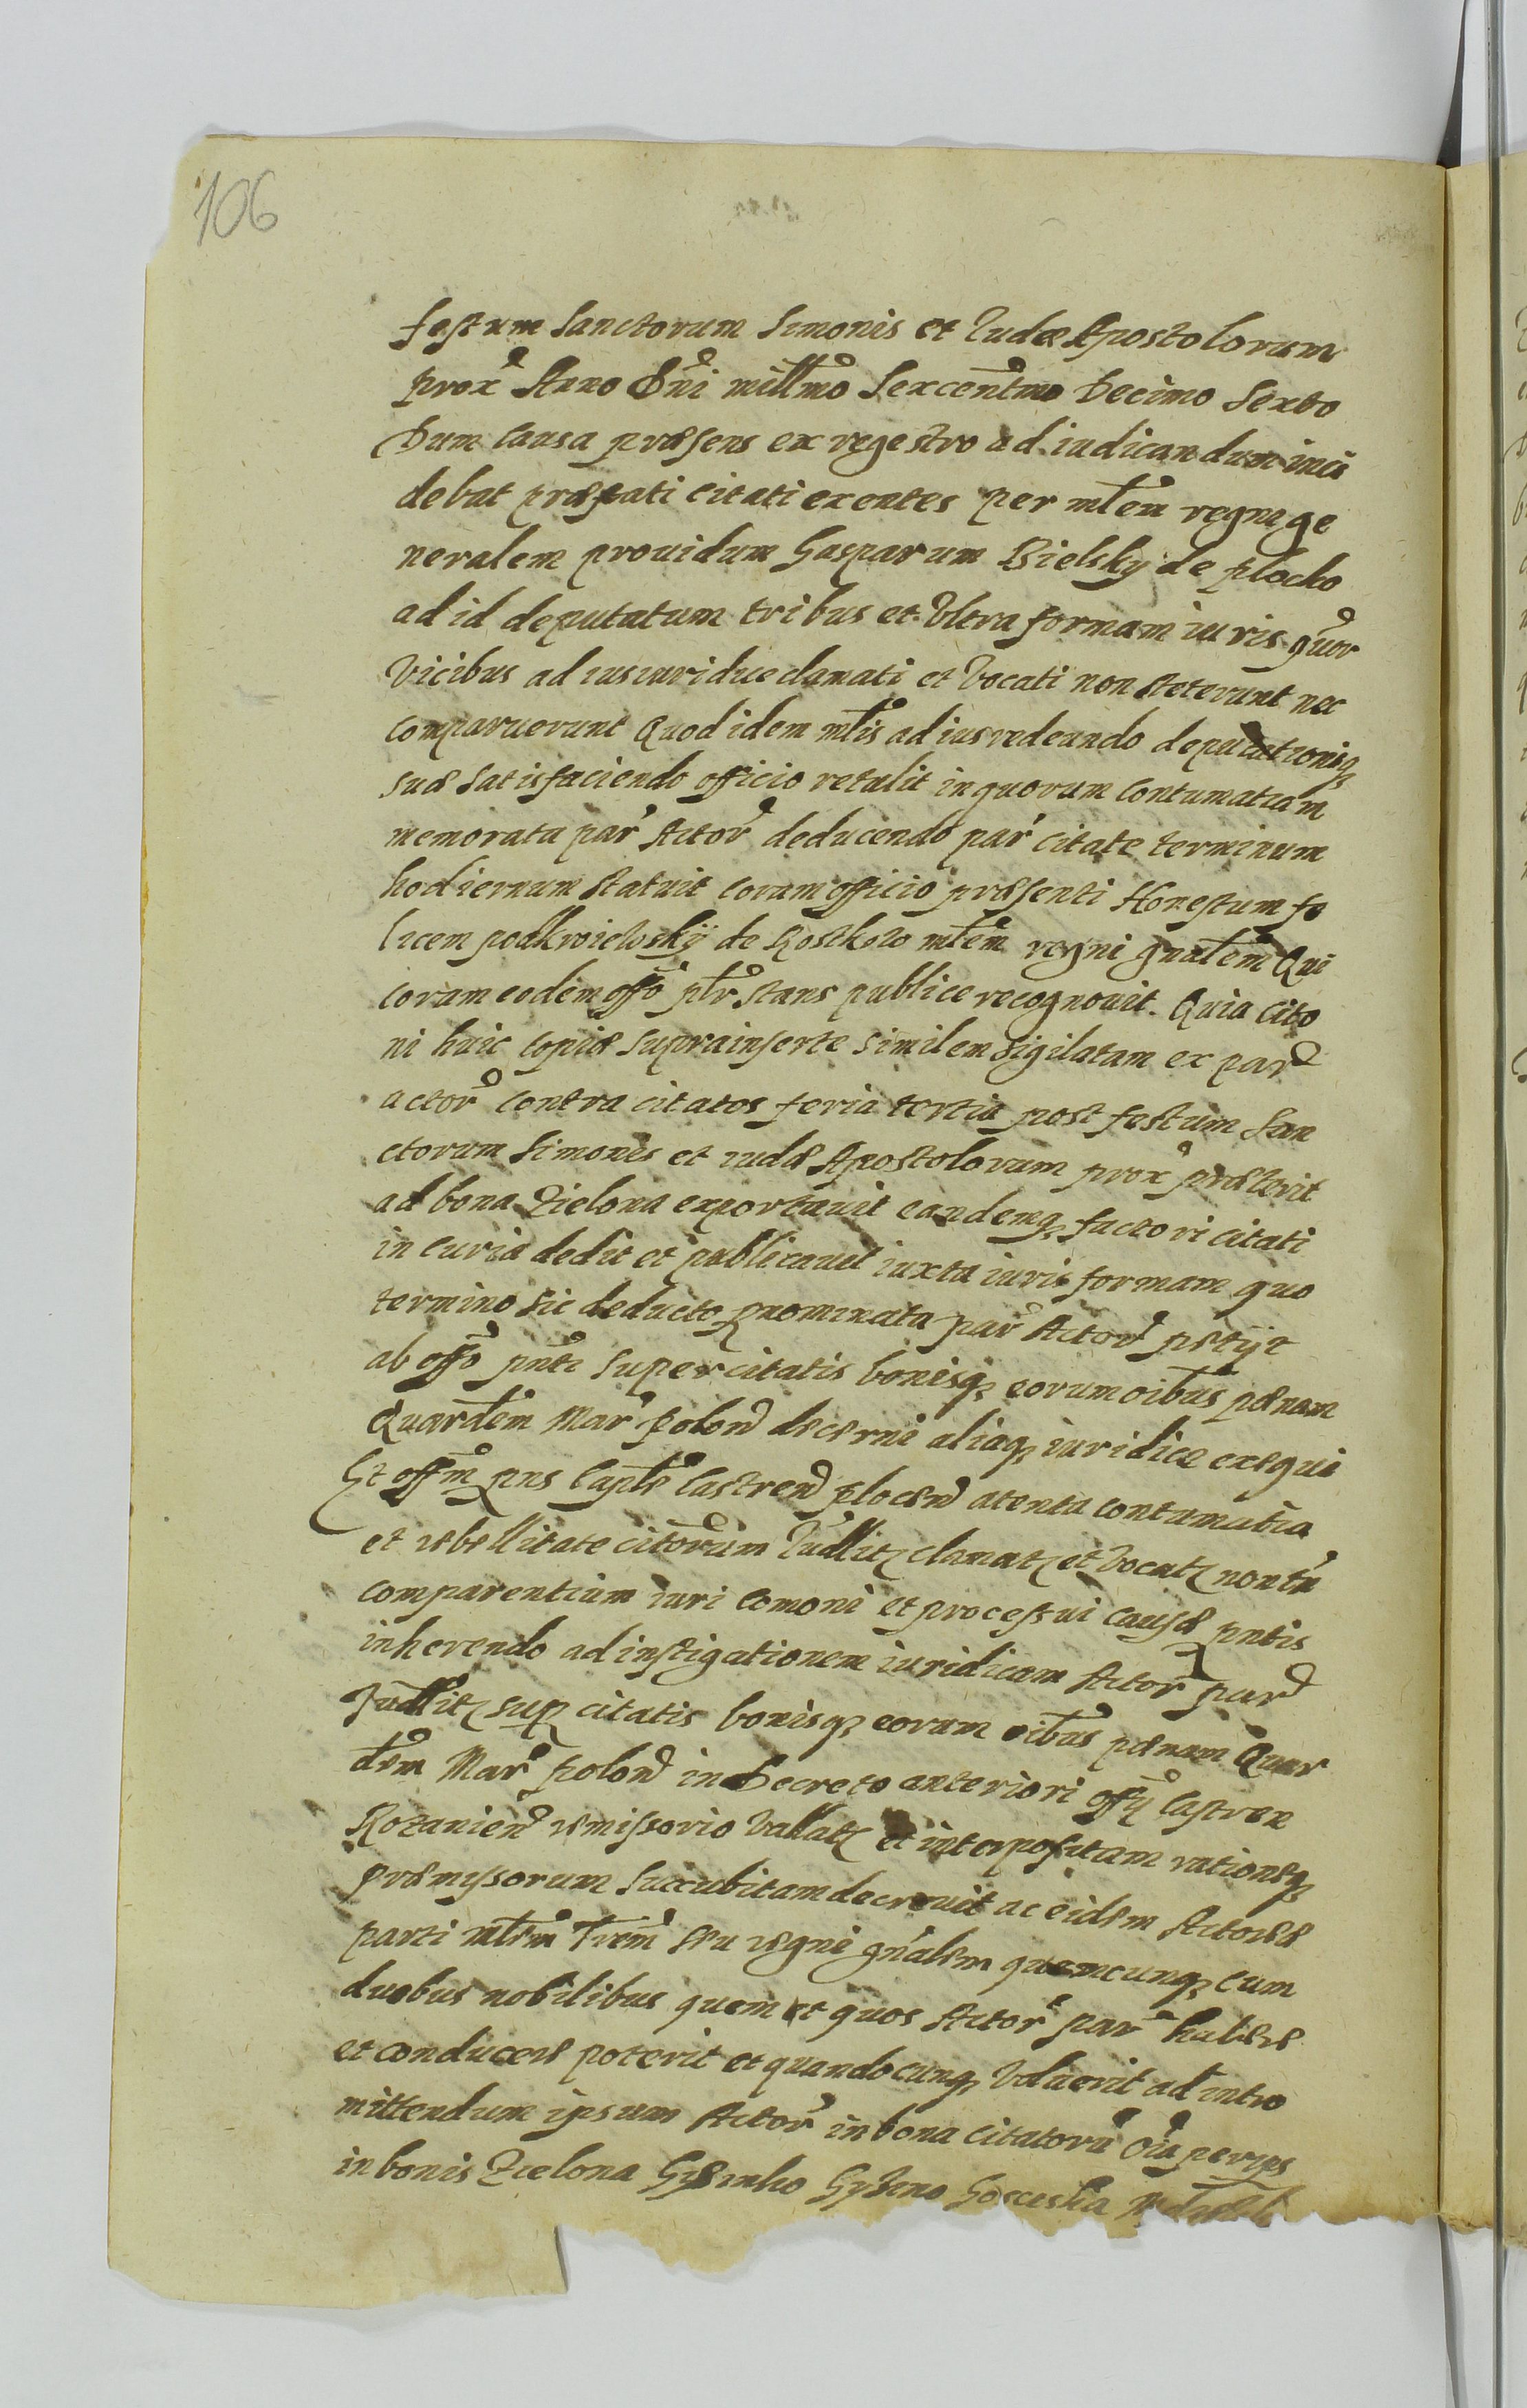 106
festum Sanctorum Simonis et Iudæ Apostolorum
prox Anno Dni millmo Sexcentmo Decimo Sexto
Dum Causa præsens ex regestro ad iudicandum inci
debat præfati Citati exentes per mtem regni ge
neralem prouidum Gasparum Bielsky de plocko
ad id deputatum tribus et Vltra formam iuris quor
Vicibus ad ius iuridice clamati et Vocati non steterunt nec
comparuerunt Quod idem mtis ad ius redeundo deputationisq
suæ satisfaciendo officio retulit in quorum Contumatiam
memorata par Actor deducendo par Citate terminum
hodiernum statuit coram officio præsenti Honestum fe
licem podkroiewsky de mtem regni gnalem Qui
coram eodem offo pltr stans publice recognouit. Quia Cito
ni huic copiæ suprainserte similem sigilatam ex par
actor Contra citatos feria tertia post festum San
ctorum Simonis et iudæ Apostolorum prox præterit
ad bona Zielona exportauit eandemq factori citati
in Curia dedit et publicauit iuxta iuris formam quo
termino sic deducto pnominata par Actor petijt
ab offo pnti super citatis bonisq eorum oibus pænam
Quardem Mar polon decerni aliaq iuridice exequi
Et offm pns Caple Castren plocen atenta contumatia
et rebellitate citorum Iudlitz clamatz et Vocatz non tn
comparentium iuri Comoni et processui causæ pntis
inherendo ad instigationem iuridicam Actor par
Iudlitz sup citatis bonisq eorum oibus pænam Quar
dem Mar polon in Decreto anteriori offy Castren
Rozanien remissorio Vallatz et interpositam rationeq
præmissorum succubitam decreuit ac eidem Actoreæ
parti mtem Trem seu regni gnalem quemcunq cum
duobus nobilibus quem et quos Actor par habere
et conducere poterit et quandocunq Voluerit ad intro
mittendum ipsum Actor in bona citatoru oia per ips
in bonis Zielona